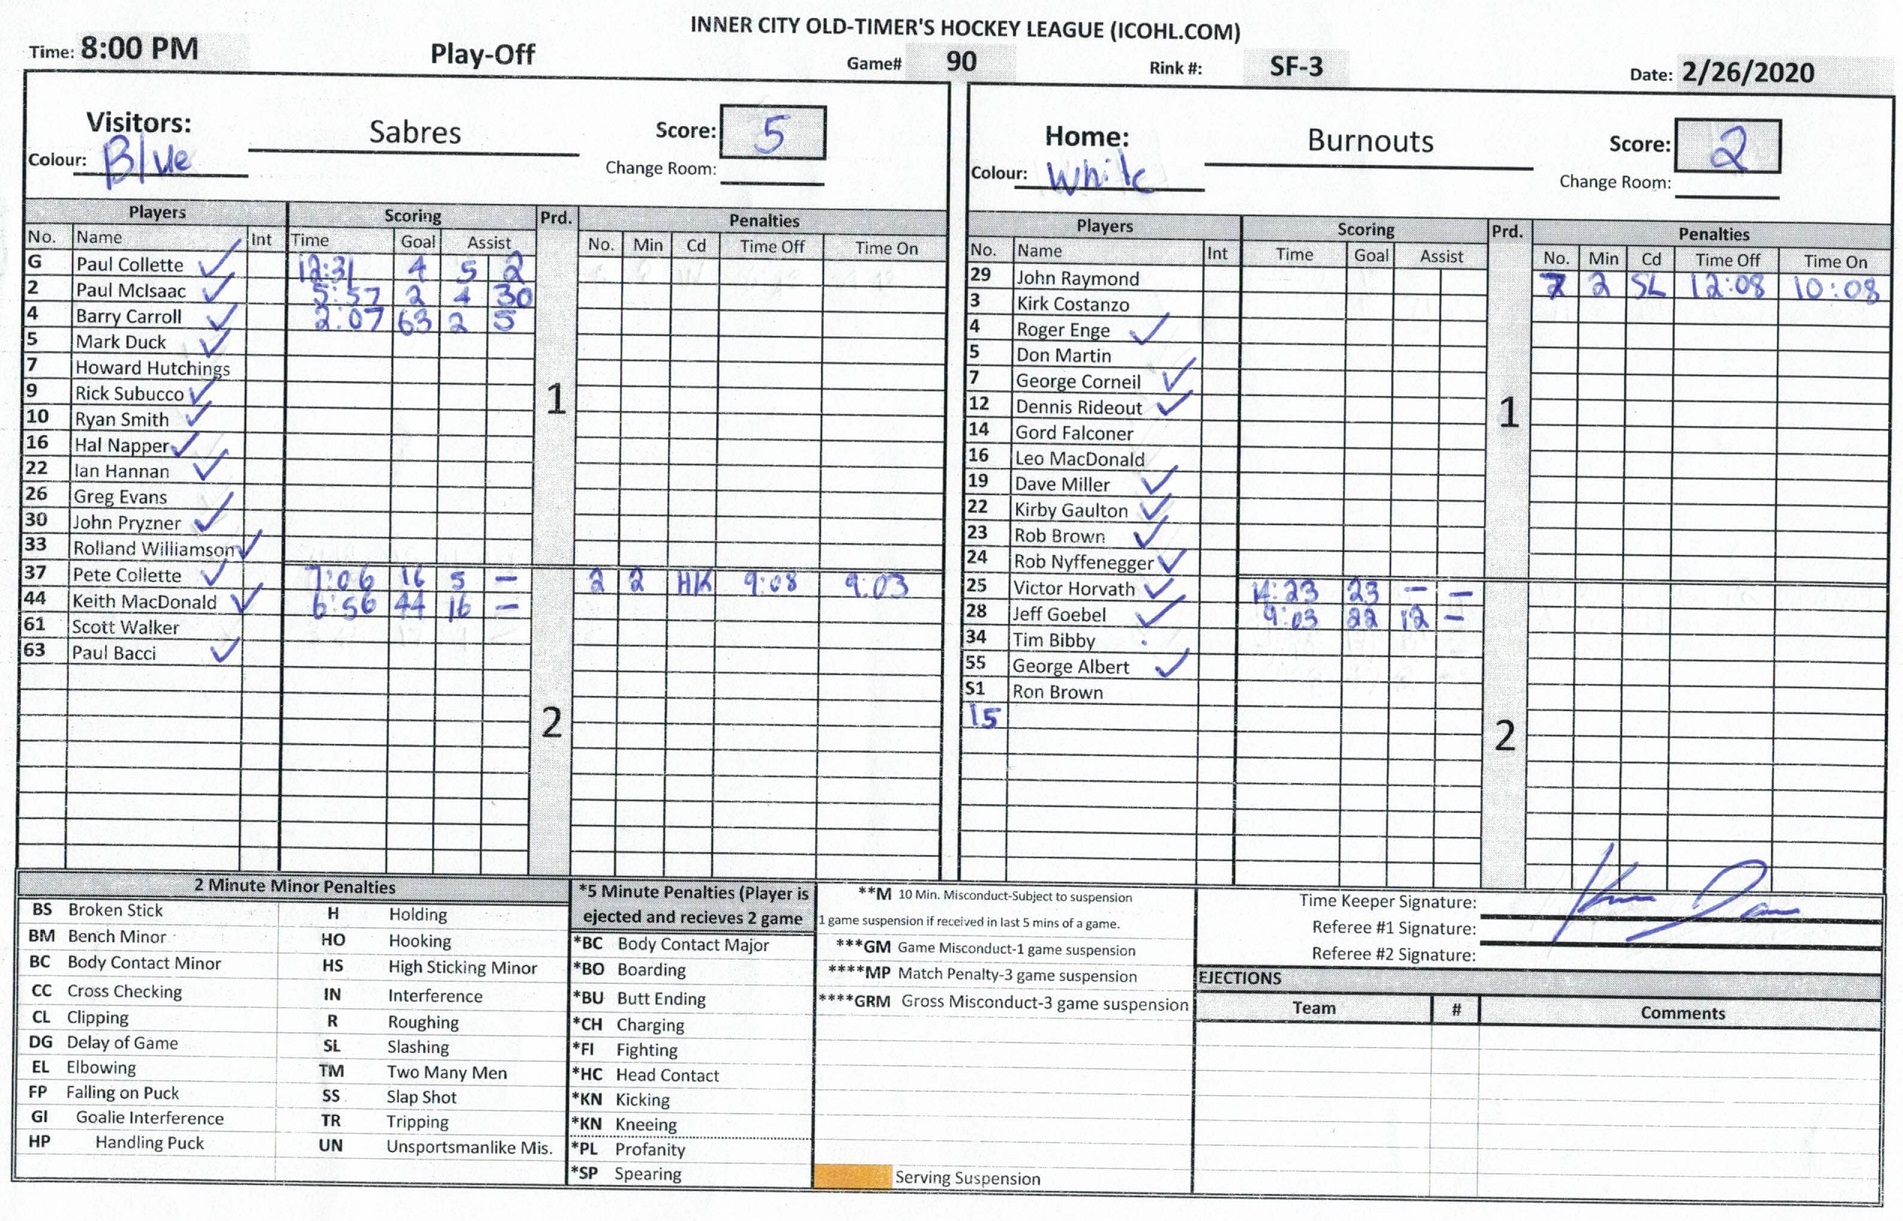 INNER CITY OLD-TIMER'S HOCKEY LEAGUE (ICOHL.COM)
Time: 8:00 PM Play-Off Game# 90 Rink #: SF-3 Date: 2/26/2020
Visitors: Sabres Score: 5
Colour: Blue Change Room:
Players Scoring Prd. Penalties
No. Name Int Time Goal Assist No. Min Cd Time Off Time On
G Paul Collette ✓ 12:31 4 5 2
2 Paul McIsaac ✓ 5:57 2 4 30
4 Barry Carroll ✓ 2:07 63 2 5
5 Mark Duck ✓
7 Howard Hutchings
9 Rick Subucco ✓
1
10 Ryan Smith ✓
16 Hal Napper ✓
22 Ian Hannan ✓
26 Greg Evans
30 John Pryzner ✓
33 Rolland Williamson ✓
37 Pete Collette ✓ 7:06 16 5 – 2 2 HK 9:08 9:03
44 Keith MacDonald ✓ 6:56 44 16 –
61 Scott Walker
63 Paul Bacci ✓
2
Home: Burnouts Score: 2
Colour: White Change Room:
Players Scoring Prd. Penalties
No. Name Int Time Goal Assist No. Min Cd Time Off Time On
29 John Raymond 7 2 SL 12:08 10:08
3 Kirk Costanzo
4 Roger Enge ✓
5 Don Martin
7 George Corneil ✓
12 Dennis Rideout ✓
1
14 Gord Falconer
16 Leo MacDonald
19 Dave Miller ✓
22 Kirby Gaulton ✓
23 Rob Brown ✓
24 Rob Nyffenegger ✓
25 Victor Horvath ✓ 14:23 23 – –
28 Jeff Goebel ✓ 9:03 22 12 –
34 Tim Bibby
55 George Albert ✓
S1 Ron Brown
15
2
2 Minute Minor Penalties
BS Broken Stick H Holding
BM Bench Minor HO Hooking
BC Body Contact Minor HS High Sticking Minor
CC Cross Checking IN Interference
CL Clipping R Roughing
DG Delay of Game SL Slashing
EL Elbowing TM Two Many Men
FP Falling on Puck SS Slap Shot
GI Goalie Interference TR Tripping
HP Handling Puck UN Unsportsmanlike Mis.
*5 Minute Penalties (Player is
ejected and recieves 2 game
*BC Body Contact Major
*BO Boarding
*BU Butt Ending
*CH Charging
*FI Fighting
*HC Head Contact
*KN Kicking
*KN Kneeing
*PL Profanity
*SP Spearing
**M 10 Min. Misconduct-Subject to suspension
1 game suspension if received in last 5 mins of a game.
***GM Game Misconduct-1 game suspension
****MP Match Penalty-3 game suspension
****GRM Gross Misconduct-3 game suspension
Serving Suspension
Time Keeper Signature:
Referee #1 Signature:
Referee #2 Signature:
EJECTIONS
Team # Comments